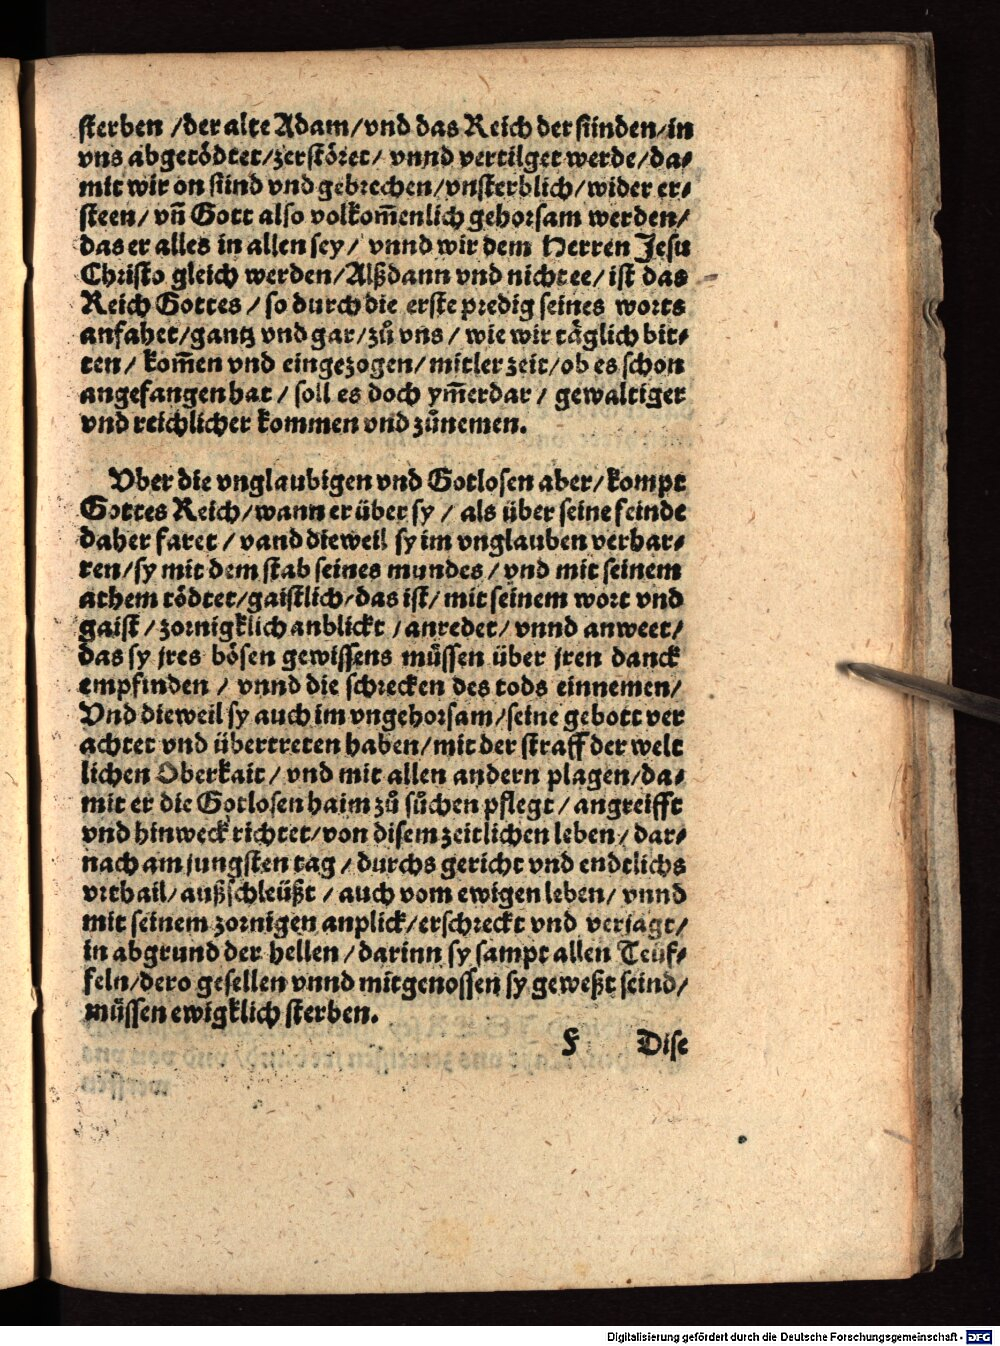 sterben /der alte Adam/vnd das Reich der sünden/in
vns abgetödtet/zerstöret/ vnnd vertilget werde/da⸗
mit wir on sünd vnd gebrechen/vnsterblich/wider er⸗
steen/ vñ Gott also volkom̃enlich gehorsam werden/
das er alles in allen sey/ vnnd wir dem Herren Jesu
Christo gleich werden/Alßdann vnd nicht ee/ ist das
Reich Gottes / so durch die erste predig seines worts
anfahet/gantz vnd gar/zů vns / wie wir täglich bit⸗
ten/ kom̃en vnd eingezogen/ mitler zeit/ob es schon
angefangen hat / soll es doch ym̃erdar / gewaltiger
vnd reichlicher kommen vnd zůnemen.
Vber die vnglaubigen vnd Gotlosen aber/kompt
Gottes Reich/wann er über sy / als über seine feinde
daher faret / vand dieweil sy im vnglauben verhar⸗
ren/sy mit dem stab seines mundes / vnd mit seinem
athem tödtet/gaistlich/das ist/ mit seinem wort vnd
gaist / zornigklich anblickt /anredet/ vnnd anweet/
das sy jres bösen gewissens müssen über jren danck
empfinden / vnnd die schrecken des tods einnemen/
Vnd dieweil sy auch im vngehorsam/seine gebott ver
achtet vnd übertreten haben/mit der straff der welt
lichen Oberkait / vnd mit allen andern plagen/da⸗
mit er die Gotlosen haim zů sůchen pflegt / angreifft
vnd hinweck richtet/von disem zeitlichen leben/ dar⸗
nach am jungsten tag / durchs gericht vnd endtlichs
vrthail/außschleüßt / auch vom ewigen leben/ vnnd
mit seinem zornigen anplick/erschreckt vnd verjagt/
in abgrund der hellen /darinn sy sampt allen Teüf⸗
feln/dero gesellen vnnd mitgenossen sy geweßt seind/
müssen ewigklich sterben.
F Dise
Digitalisierung gefördert durch die Deutsche Forschungsgemeinschaft - DFG